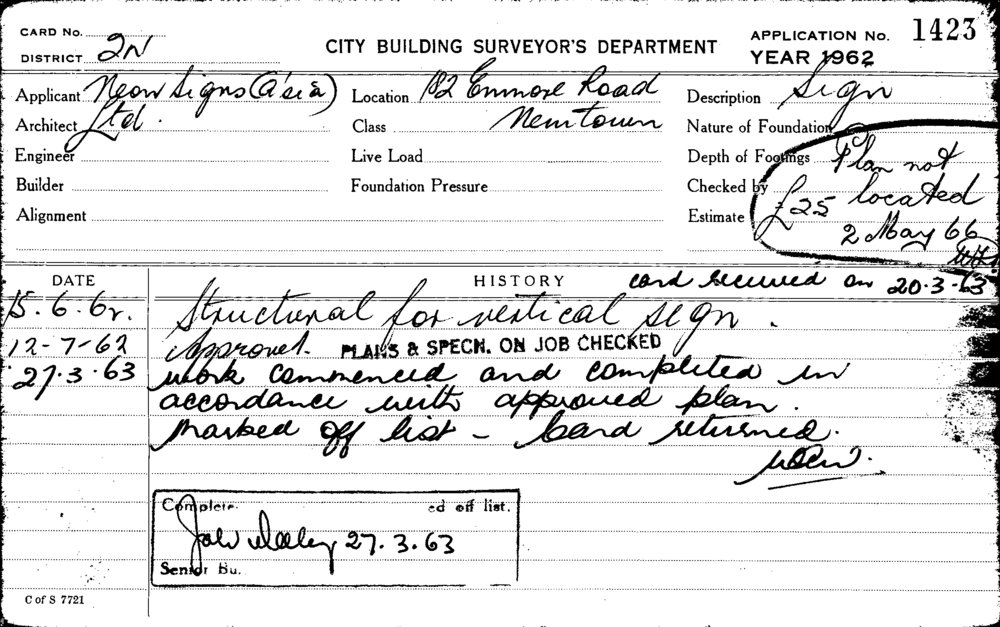 CARD No.
DISTRICT 2N
CITY BUILDING SURVEYOR'S DEPARTMENT
APPLICATION No. 1423
YEAR 1962
Applicant Neon Signs (A'sia)
Location 182 Enmore Road
Description Sign
Architect Ltd.
Class Newtown
Nature of Foundation
Engineer
Live Load
Depth of Footings
Plan not
Builder
Foundation Pressure
Checked by
located
Alignment
Estimate £25
2 May 66
DATE
HISTORY
card received on 20.3.63
15.6.62. Structural for vertical sign.
12-7-62 Approved. PLANS & SPECN. ON JOB CHECKED
27.3.63 work commenced and completed in
accordance with approved plan.
Marked off list - Card returned.
Complete ed off list.
27.3.63
Senior Bu.
C of S 7721